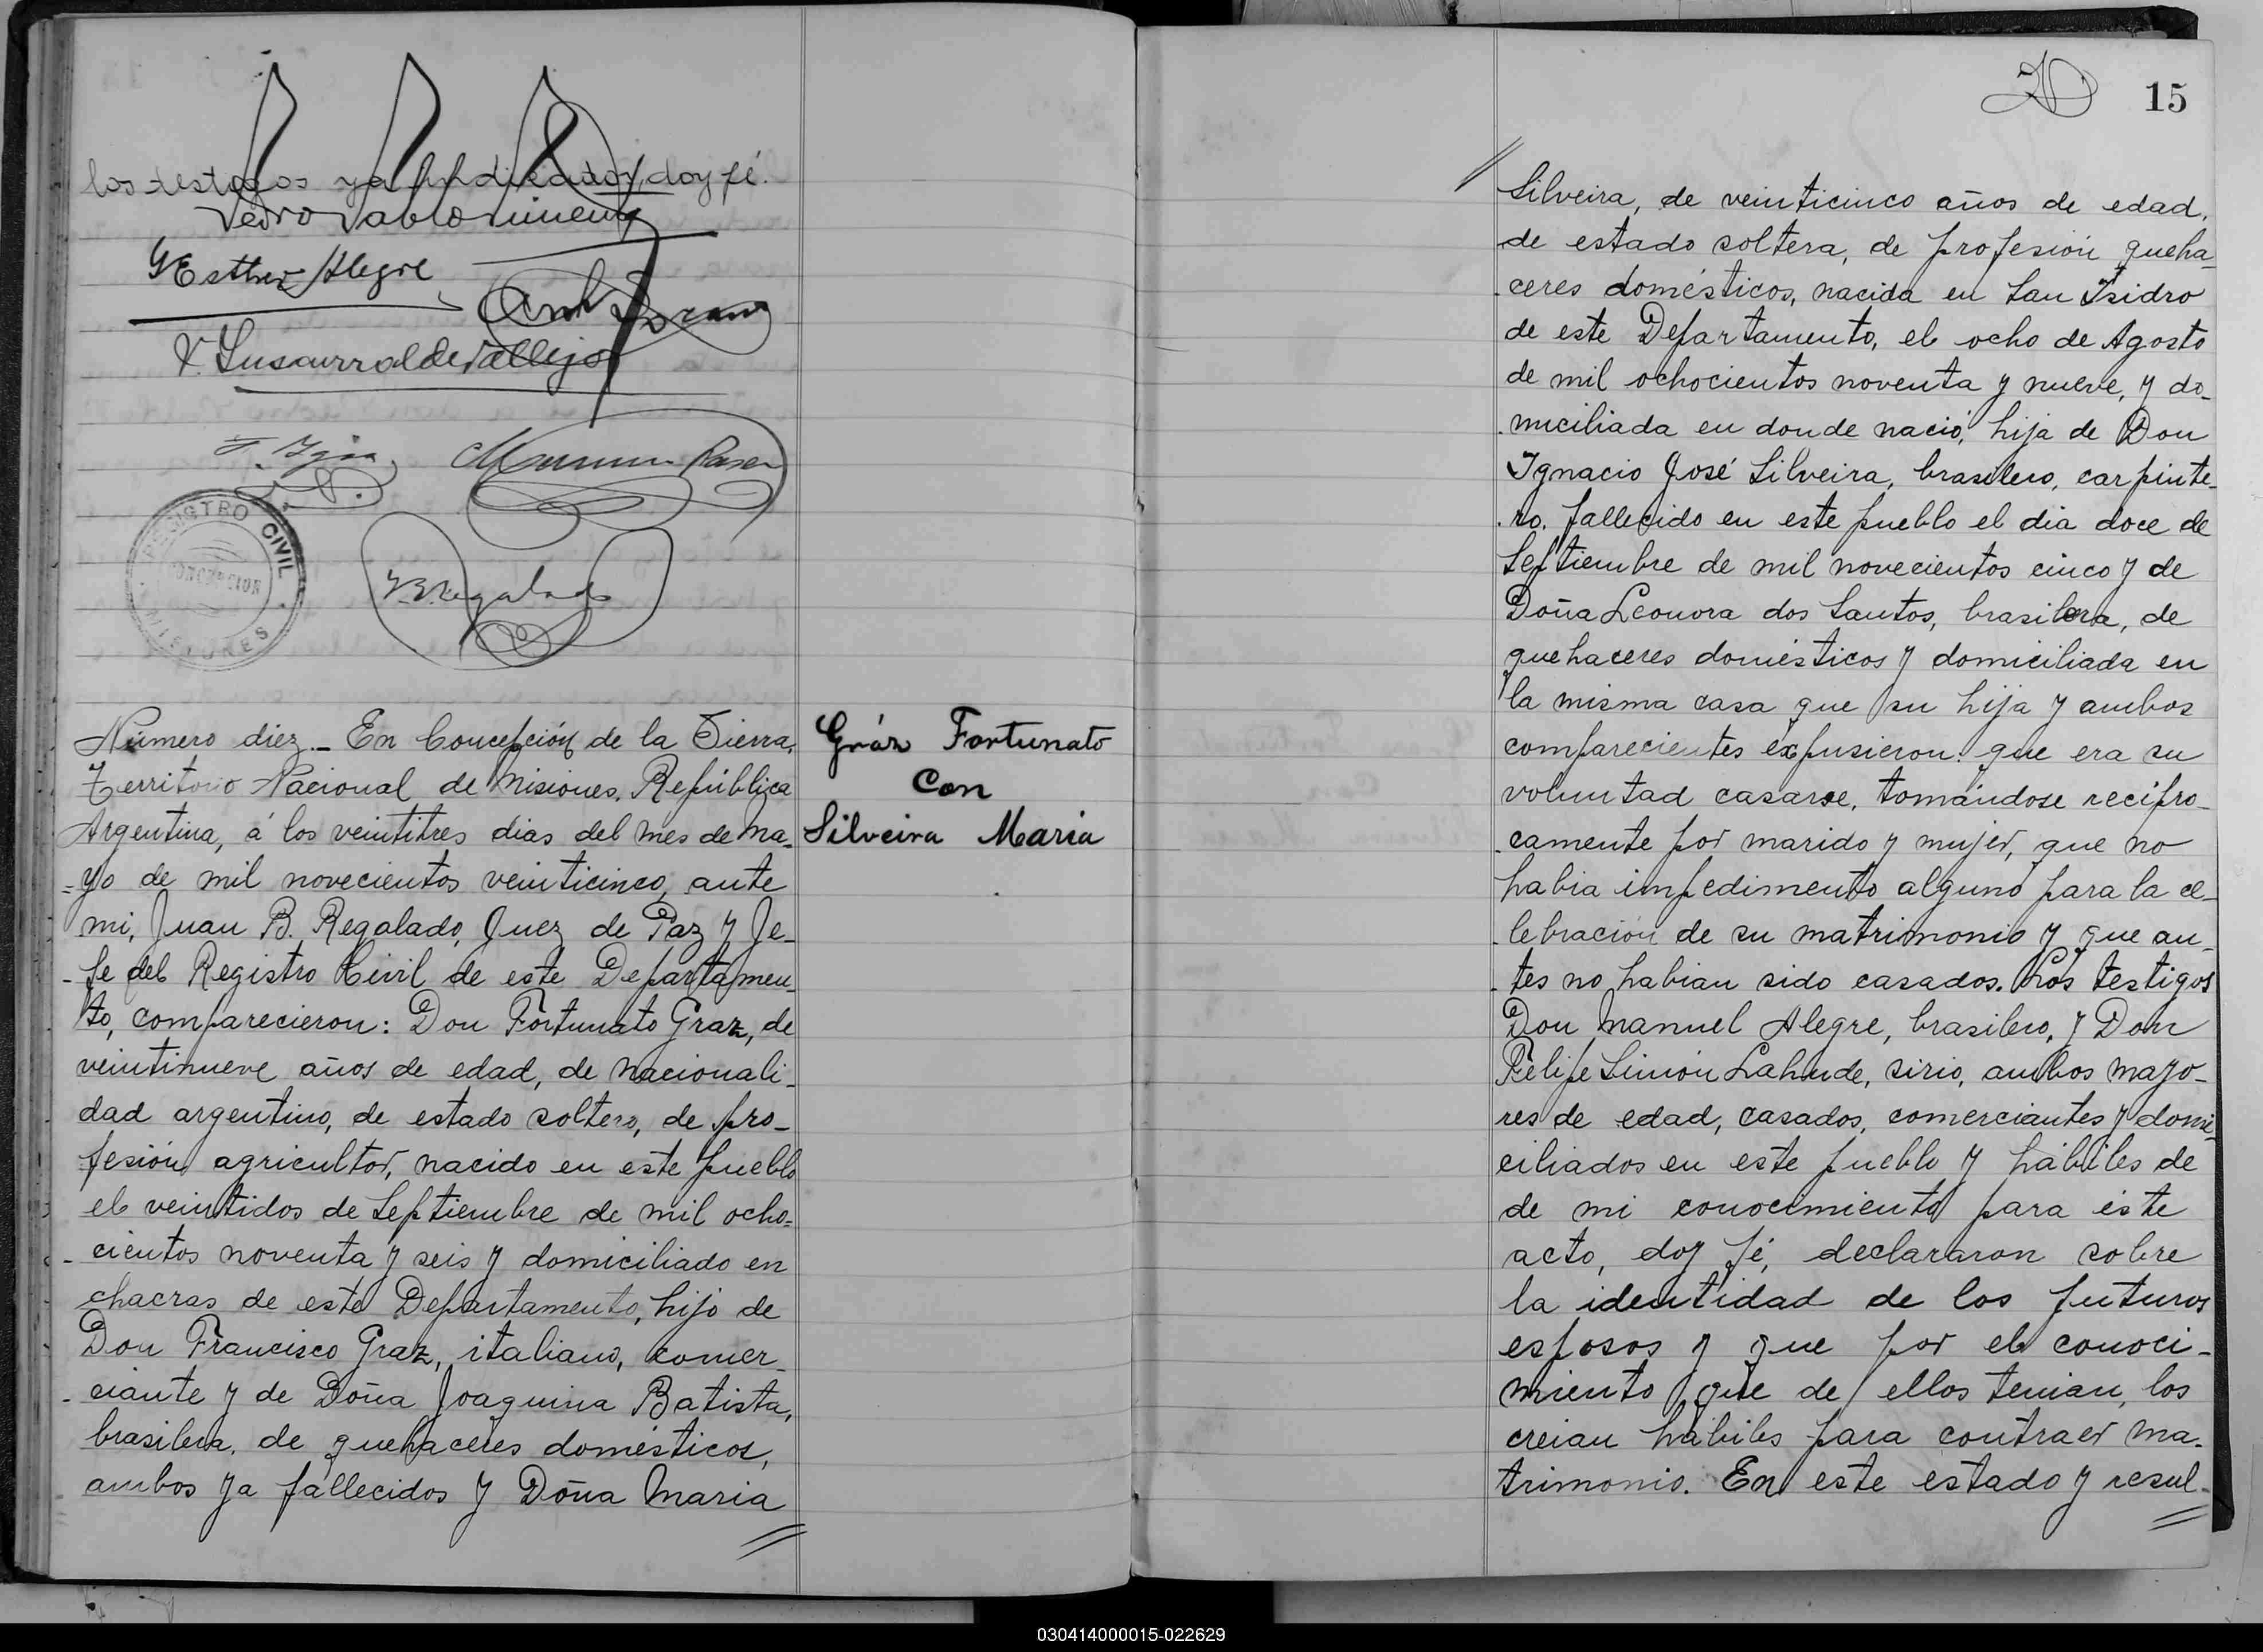 los testigos ya indicados, doy fé.
Pedro Pablo Gimenez
G Esther Alegre
V. Lusaurralde Vallejos
REGISTRO CIVIL
CONCEPCION
MISIONES
J B Regalado
Número diez._ En Concepción de la Sierra,
Territorio Nacional de Misiones, República
Argentina, á los veintitres dias del mes de Ma_
=yo de mil novecientos veinticinco, ante
mi, Juan B. Regalado, Juez de Paz y Je_
-fe del Registro Civil de este Departamen_
to, comparecieron: Don Fortunato Graz, de
veintinueve años de edad, de nacionali_
dad argentino, de estado soltero, de pro_
fesión agricultor, nacido en este pueblo
el veintidos de Septiembre de mil ocho=
-cientos noventa y seis y domiciliado en
chacras de este Departamento, hijo de
Don Francisco Graz, italiano, comer_
-ciante y de Doña Joaquina Batista,
brasilera, de quehaceres domésticos,
ambos ya fallecidos y Doña Maria
Gráz Fortunato
Con
Silveira Maria
15
Silveira, de veinticinco años de edad,
de estado soltera, de profesión queha_
ceres domésticos, nacida en San Isidro
de este Departamento, el ocho de Agosto
de mil ochocientos noventa y nueve, y do_
miciliada en donde nació, hija de Don
Ignacio José Silveira, brasilero, carpinte_
ro. fallecido en este pueblo el dia doce de
Septiembre de mil novecientos cinco y de
Doña Leonora dos Santos, brasilera, de
quehaceres domésticos y domiciliada en
la misma casa que su hija y ambos
comparecientes expusieron: que era su
voluntad casarse, tomándose recipro_
camente por marido y mujer, que no
habia impedimento alguno para la ce_
lebración de su matrimonio y que an_
tes no habian sido casados. Los testigos
Don Manuel Alegre, brasilero, y Don
Felipe Simón Lahude, sirio, ambos mayo_
res de edad, casados, comerciantes y domi_
ciliados en este pueblo y hábiles de
de mi conocimiento para éste
acto, doy fé, declararon sobre
la identidad de los futuros
esposos y que por el conoci-
miento que de ellos tenian, los
creian hábiles para contraer ma_
trimonio. En este estado y resul_
030414000015-022629